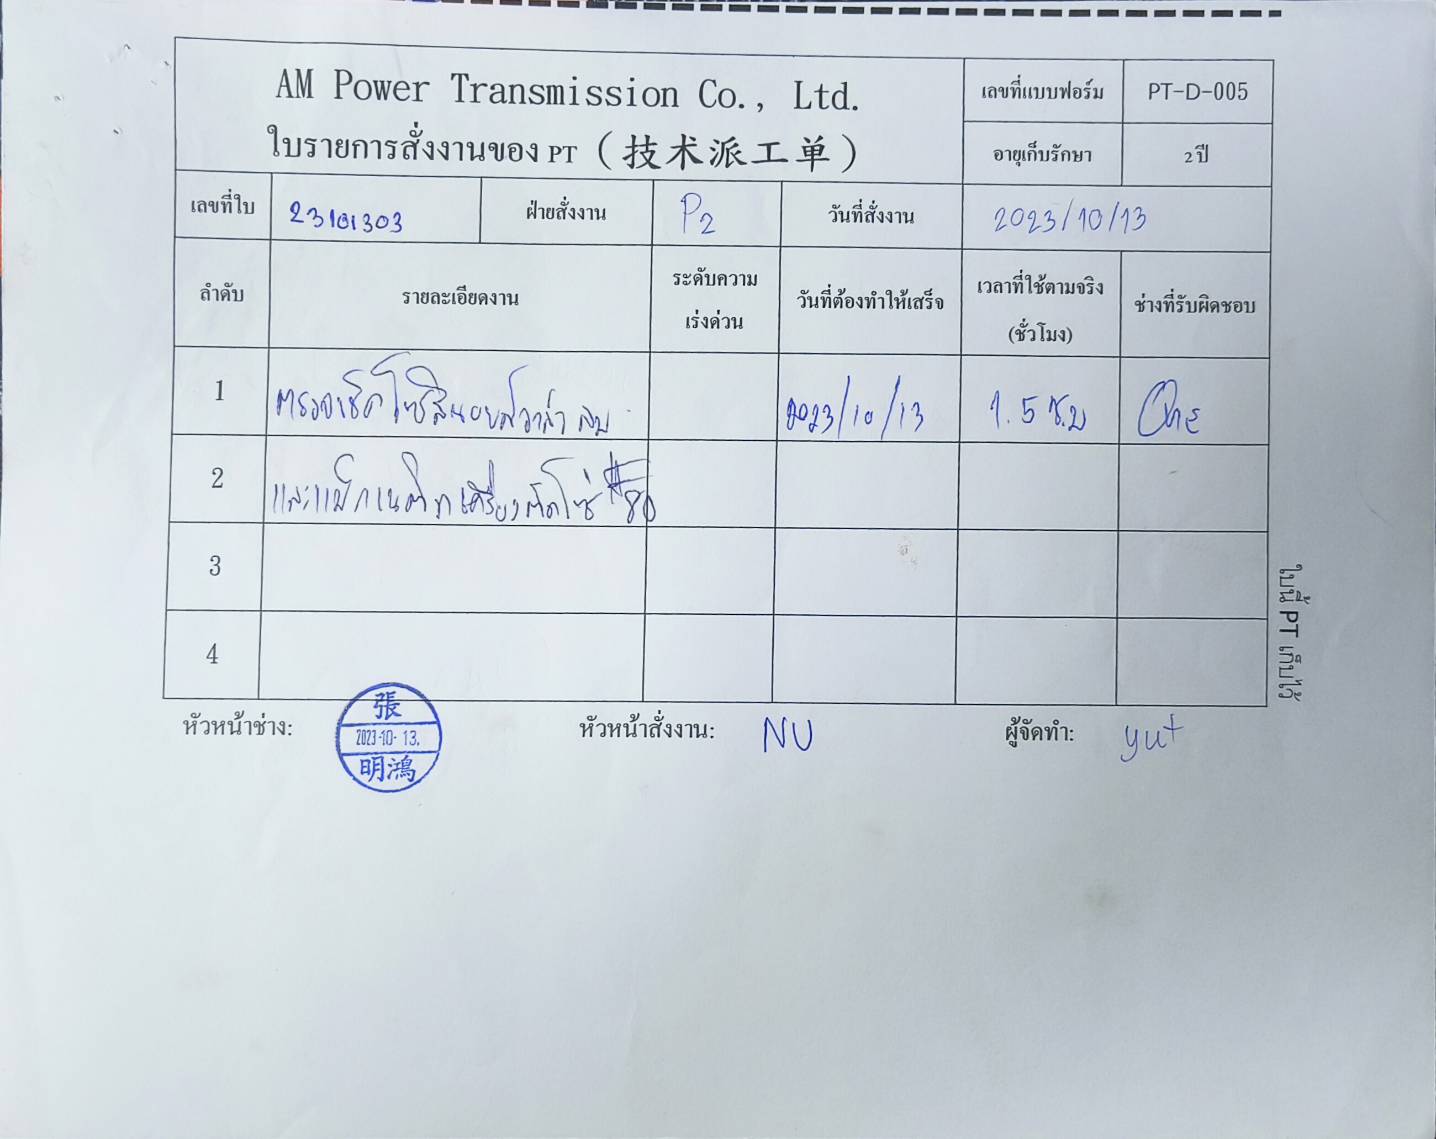 AM Power Transmission Co., Ltd.
ใบรายการสั่งงานของ PT (技术派工单)
เลขที่แบบฟอร์ม PT-D-005
อายุเก็บรักษา 2 ปี
เลขที่ใบ 23101303 ฝ่ายสั่งงาน P2 วันที่สั่งงาน 2023/10/13
ลำดับ รายละเอียดงาน ระดับความเร่งด่วน วันที่ต้องทำให้เสร็จ เวลาที่ใช้ตามจริง (ชั่วโมง) ช่างที่รับผิดชอบ
1 ตรวจเช็คโซลินอยล์วาล์ว ลม 2023/10/13 1.5 ช.ม
2 และแม็กเนติก เครื่องตัดโซ่ #80
3
4
หัวหน้าช่าง: 張 2023.10.13. 明鴻 หัวหน้าสั่งงาน: NU ผู้จัดทำ: yut
ใบนี้ PT เก็บไว้